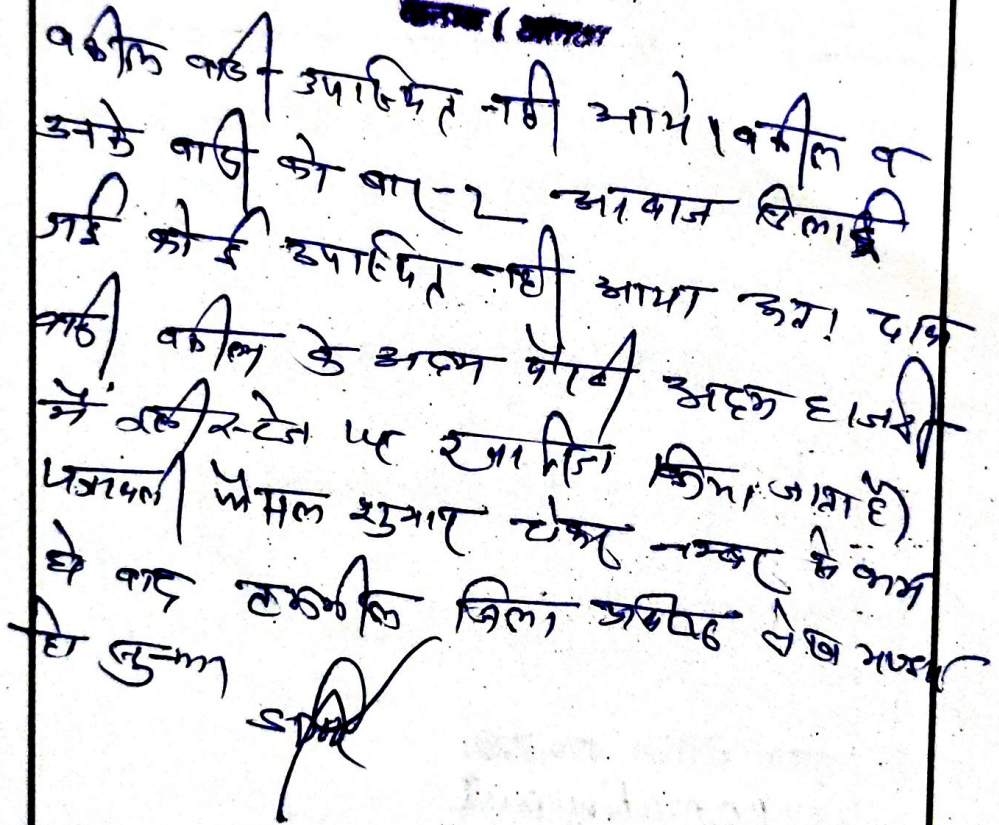 वकील वादी उपस्थित नही आये। वकील व
उनके वादी को बार-2 आवाज दिलाई
गई कोई उपस्थित नही आया अतः दावा
वादी वकील के अदम पैरवी अदम हाजरी
में इसी स्टेज पर खारिज किया जाता है।
पत्रावली फैसल शुमार होकर नम्बर से कम
हो बाद तकमील जिला अभिलेख
हो सुनाया